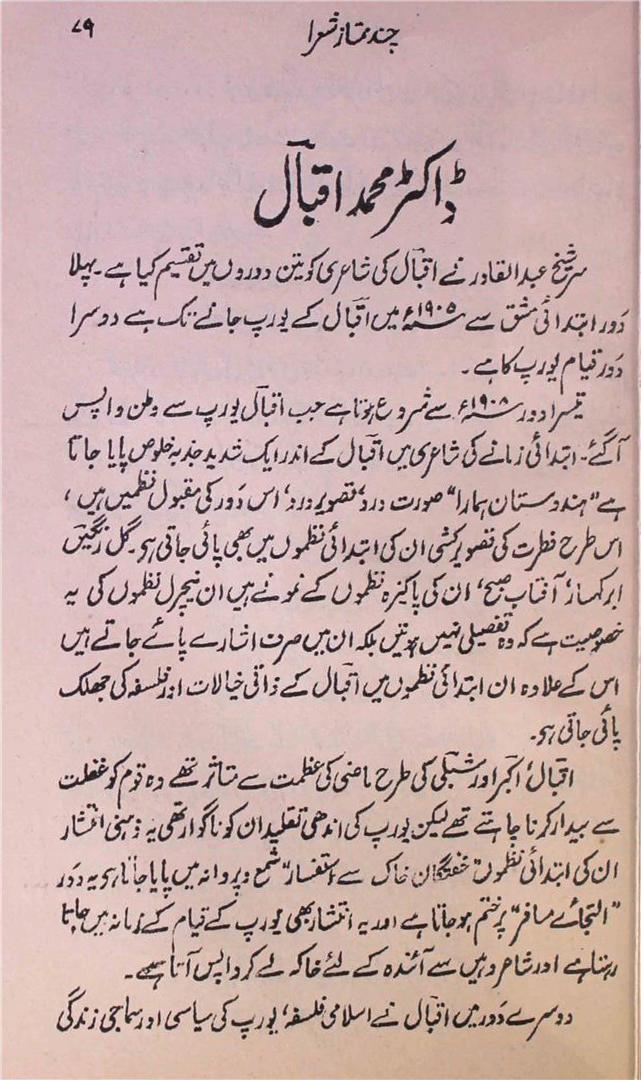 چند ممتاز شعرا
۷۹
ڈاکٹر محمد اقبالؔ
سر شیخ عبدالقادر نے اقبالؔ کی شاعری کو تین دوروں میں تقسیم کیا ہے۔ پہلا
دَور ابتدائی مشق سے سنہ ۱۹۰۵ء میں اقبالؔ کے یورپ جانے تک ہے دوسرا
دَور قیام یورپ کا ہے۔
تیسرا دور سنہ ۱۹۰۸ء سے شروع ہوتا ہے جب اقبالؔ یورپ سے وطن واپس
آ گئے۔ ابتدائی زمانے کی شاعری میں اقبالؔ کے اندر ایک شدید جذبہ خلوص پایا جاتا
ہے "ہندوستان ہمارا" صورت درد، تصویر درد، اس دَور کی مقبول نظمیں ہیں،
اس طرح فطرت کی تصویر کشی ان کی ابتدائی نظموں میں بھی پائی جاتی ہو۔ گل رنگیں
ابر کہسار، آفتاب صبح، ان کی پاکیزہ نظموں کے نمونے ہیں ان نیچرل نظموں کی یہ
خصوصیت ہے کہ وہ تفصیلی نہیں ہوتیں بلکہ ان میں صرف اشارے پائے جاتے ہیں
اس کے علاوہ ان ابتدائی نظموں میں اقبالؔ کے ذاتی خیالات اور فلسفہ کی جھلک
پائی جاتی ہو۔
اقبالؔ، اکبرؔ اور شبلیؔ کی طرح ماضی کی عظمت سے متاثر تھے وہ قوم کو غفلت
سے بیدار کرنا چاہتے تھے لیکن یورپ کی اندھی تقلید ان کو ناگوار تھی یہ ذہنی انتشار
ان کی ابتدائی نظموں "خفتگان خاک سے استفسار" شمع و پروانہ میں پایا جاتا ہو یہ دَور
"التجائے مسافر" پر ختم ہو جاتا ہے اور یہ انتشار بھی یورپ کے قیام کے زمانہ میں جاتا
رہتا ہے اور شاعر وہیں سے آئندہ کے لئے خاکہ لے کر واپس آتا ہے۔
دوسرے دَور میں اقبالؔ نے اسلامی فلسفہ، یورپ کی سیاسی اور سماجی زندگی